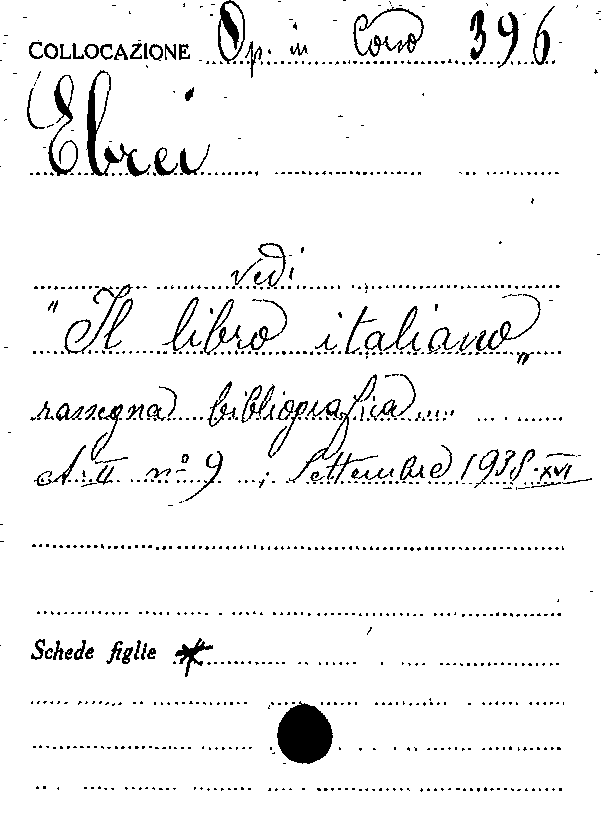 COLLOCAZIONE Op. in Corso 396
Ebrei
vedi
"Il libro italiano„
rassegna bibliografica.....
A. II n° 9 ; Settembre 1938-XVI
Schede figlie *